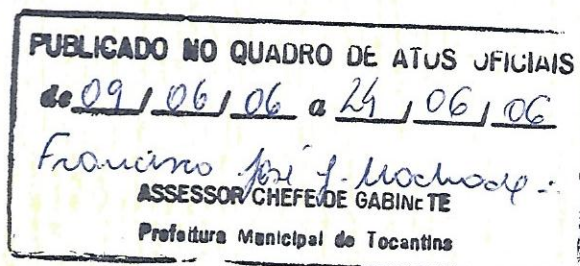 PUBLICADO NO QUADRO DE ATOS OFICIAIS
de 09 / 06 / 06 a 24 / 06 / 06
Francisco José J. Machado
ASSESSOR CHEFE DE GABINETE
Prefeitura Municipal de Tocantins